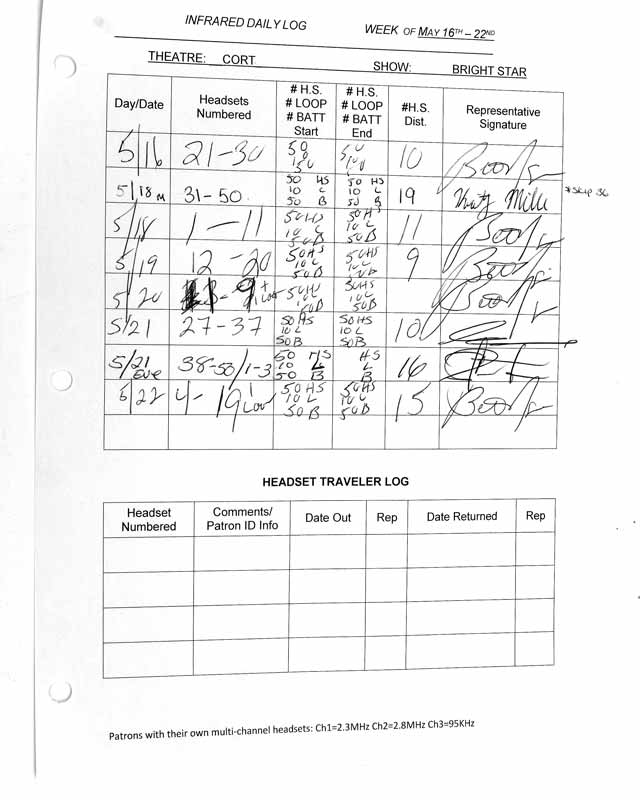 INFRARED DAILY LOG WEEK OF MAY 16TH - 22ND
THEATRE: CORT SHOW: BRIGHT STAR
Day/Date Headsets Numbered # H.S. # LOOP # BATT Start # H.S. # LOOP # BATT End #H.S. Dist. Representative Signature
5/16 21-30 50 10 50 50 10 50 10
5/18 M 31-50. 50 HS 10 L 50 B 50 HS 10 L 50 B 19 *Skip 36
5/18 1-11 50HS 10 L 50B 50HS 10 L 50B 11
5/19 12-20 50HS 10L 50B 50HS 10L 50B 9
5/20 50HS 10L 50B
5/21 27-37 50HS 10L 50B 50HS 10L 50B 10
5/21 eve 38-50/1-3 50 HS 10 L 50 B HS L B 16
5/22 4-19 50HS 10L 50B 50HS 10L 50B 15
HEADSET TRAVELER LOG
Headset Numbered Comments/ Patron ID Info Date Out Rep Date Returned Rep
Patrons with their own multi-channel headsets: Ch1=2.3MHz Ch2=2.8MHz Ch3=95KHz